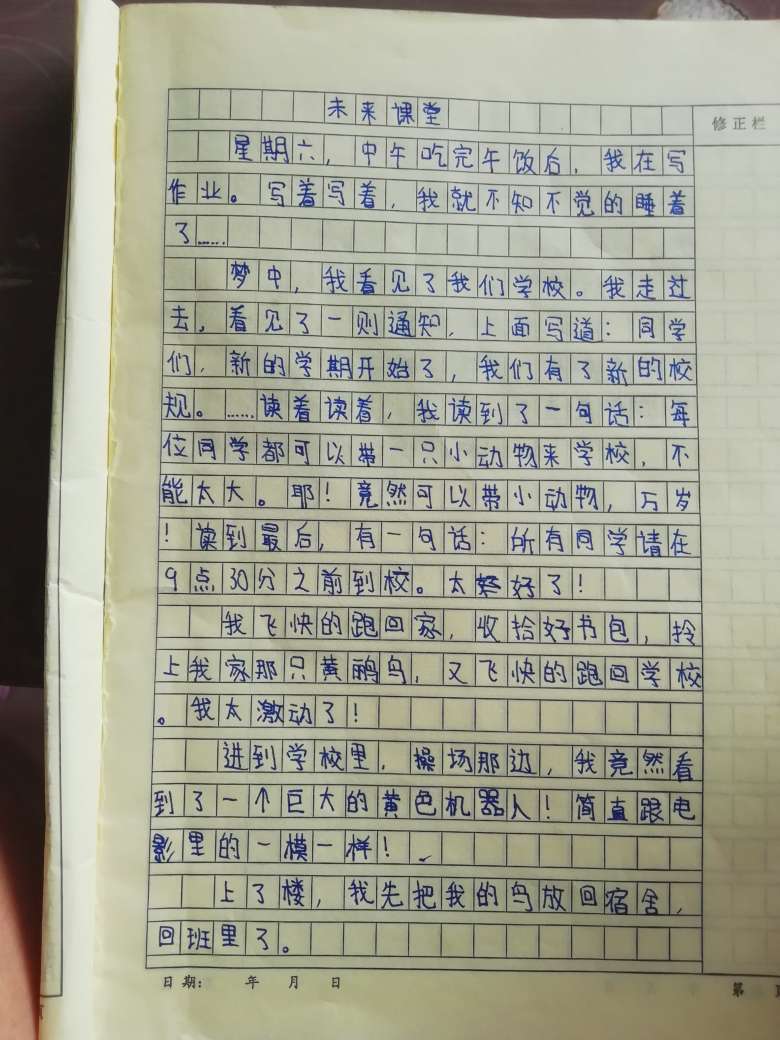 未来课堂
修正栏
星期六，中午吃完午饭后，我在写
作业。写着写着，我就不知不觉的睡着
了……
梦中，我看见了我们学校。我走过
去，看见了一则通知，上面写道：同学
们，新的学期开始了，我们有了新的校
规。……读着读着，我读到了一句话：每
位同学都可以带一只小动物来学校，不
能太大。耶！竟然可以带小动物，万岁
！读到最后，有一句话：所有同学请在
9点30分之前到校。太好了！
我飞快的跑回家，收拾好书包，拎
上我家那只黄鹂鸟，又飞快的跑回学校
。我太激动了！
进到学校里，操场那边，我竟然看
到了一个巨大的黄色机器人！简直跟电
影里的一模一样！
上了楼，我先把我的鸟放回宿舍，
回班里了。
日期： 年 月 日
第